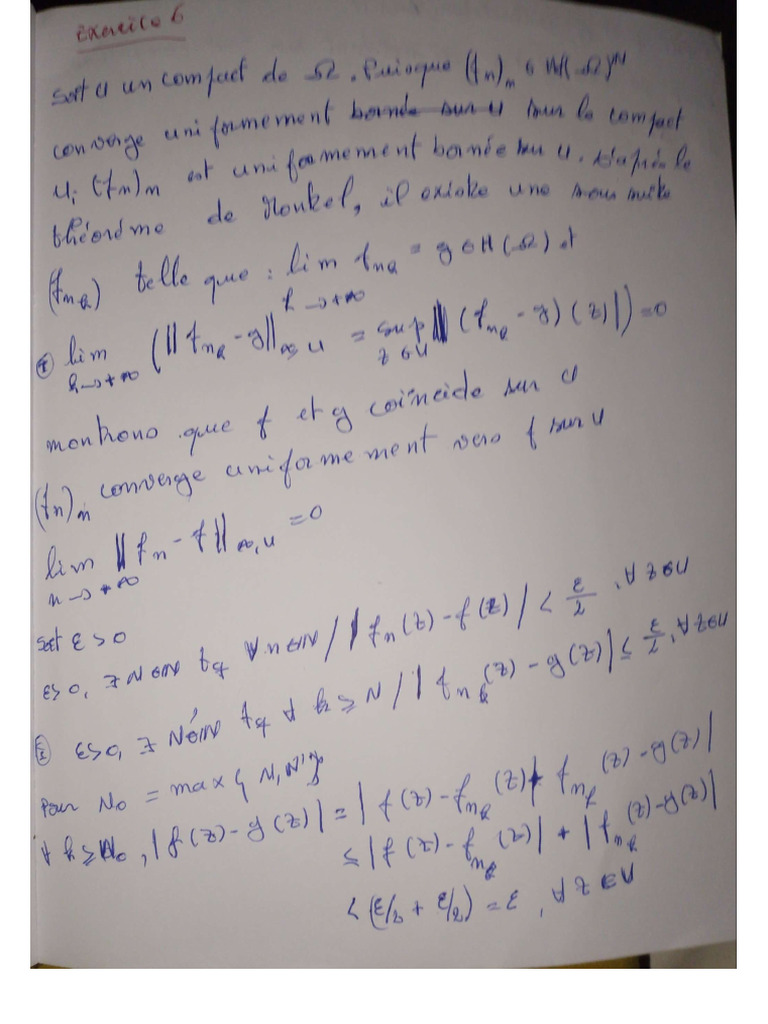 Exercice 6
Soit U un compact de Ω. Puisque (fn)n ∈ H(Ω)^N
converge uniformement sur le compact
U, (fn)n est uniformement bornée sur U. D'après le
théoréme de Montel, il existe une sous suite
(fnk) telle que : lim fnk = g ∈ H(Ω) et
k → +∞
① lim (||fnk - g||∞,U = sup |(fnk - g)(z)|) = 0
k→+∞ z∈U
montrons que f et g coïncide sur U
(fn)n converge uniformement vers f sur U
lim ||fn - f||∞,U = 0
n→+∞
Soit ε > 0
ε>0, ∃ N∈N tq ∀ n∈N / |fn(z) - f(z)| < ε/2, ∀ z∈U
① ε>0, ∃ N'∈N tq ∀ k ≥ N / |fnk(z) - g(z)| ≤ ε/2, ∀ z∈U
Pour N0 = max{N, N'}
∀ k ≥ N0, |f(z) - g(z)| = |f(z) - fnk(z) + fnk(z) - g(z)|
≤ |f(z) - fnk(z)| + |fnk(z) - g(z)|
< (ε/2 + ε/2) = ε, ∀ z∈U